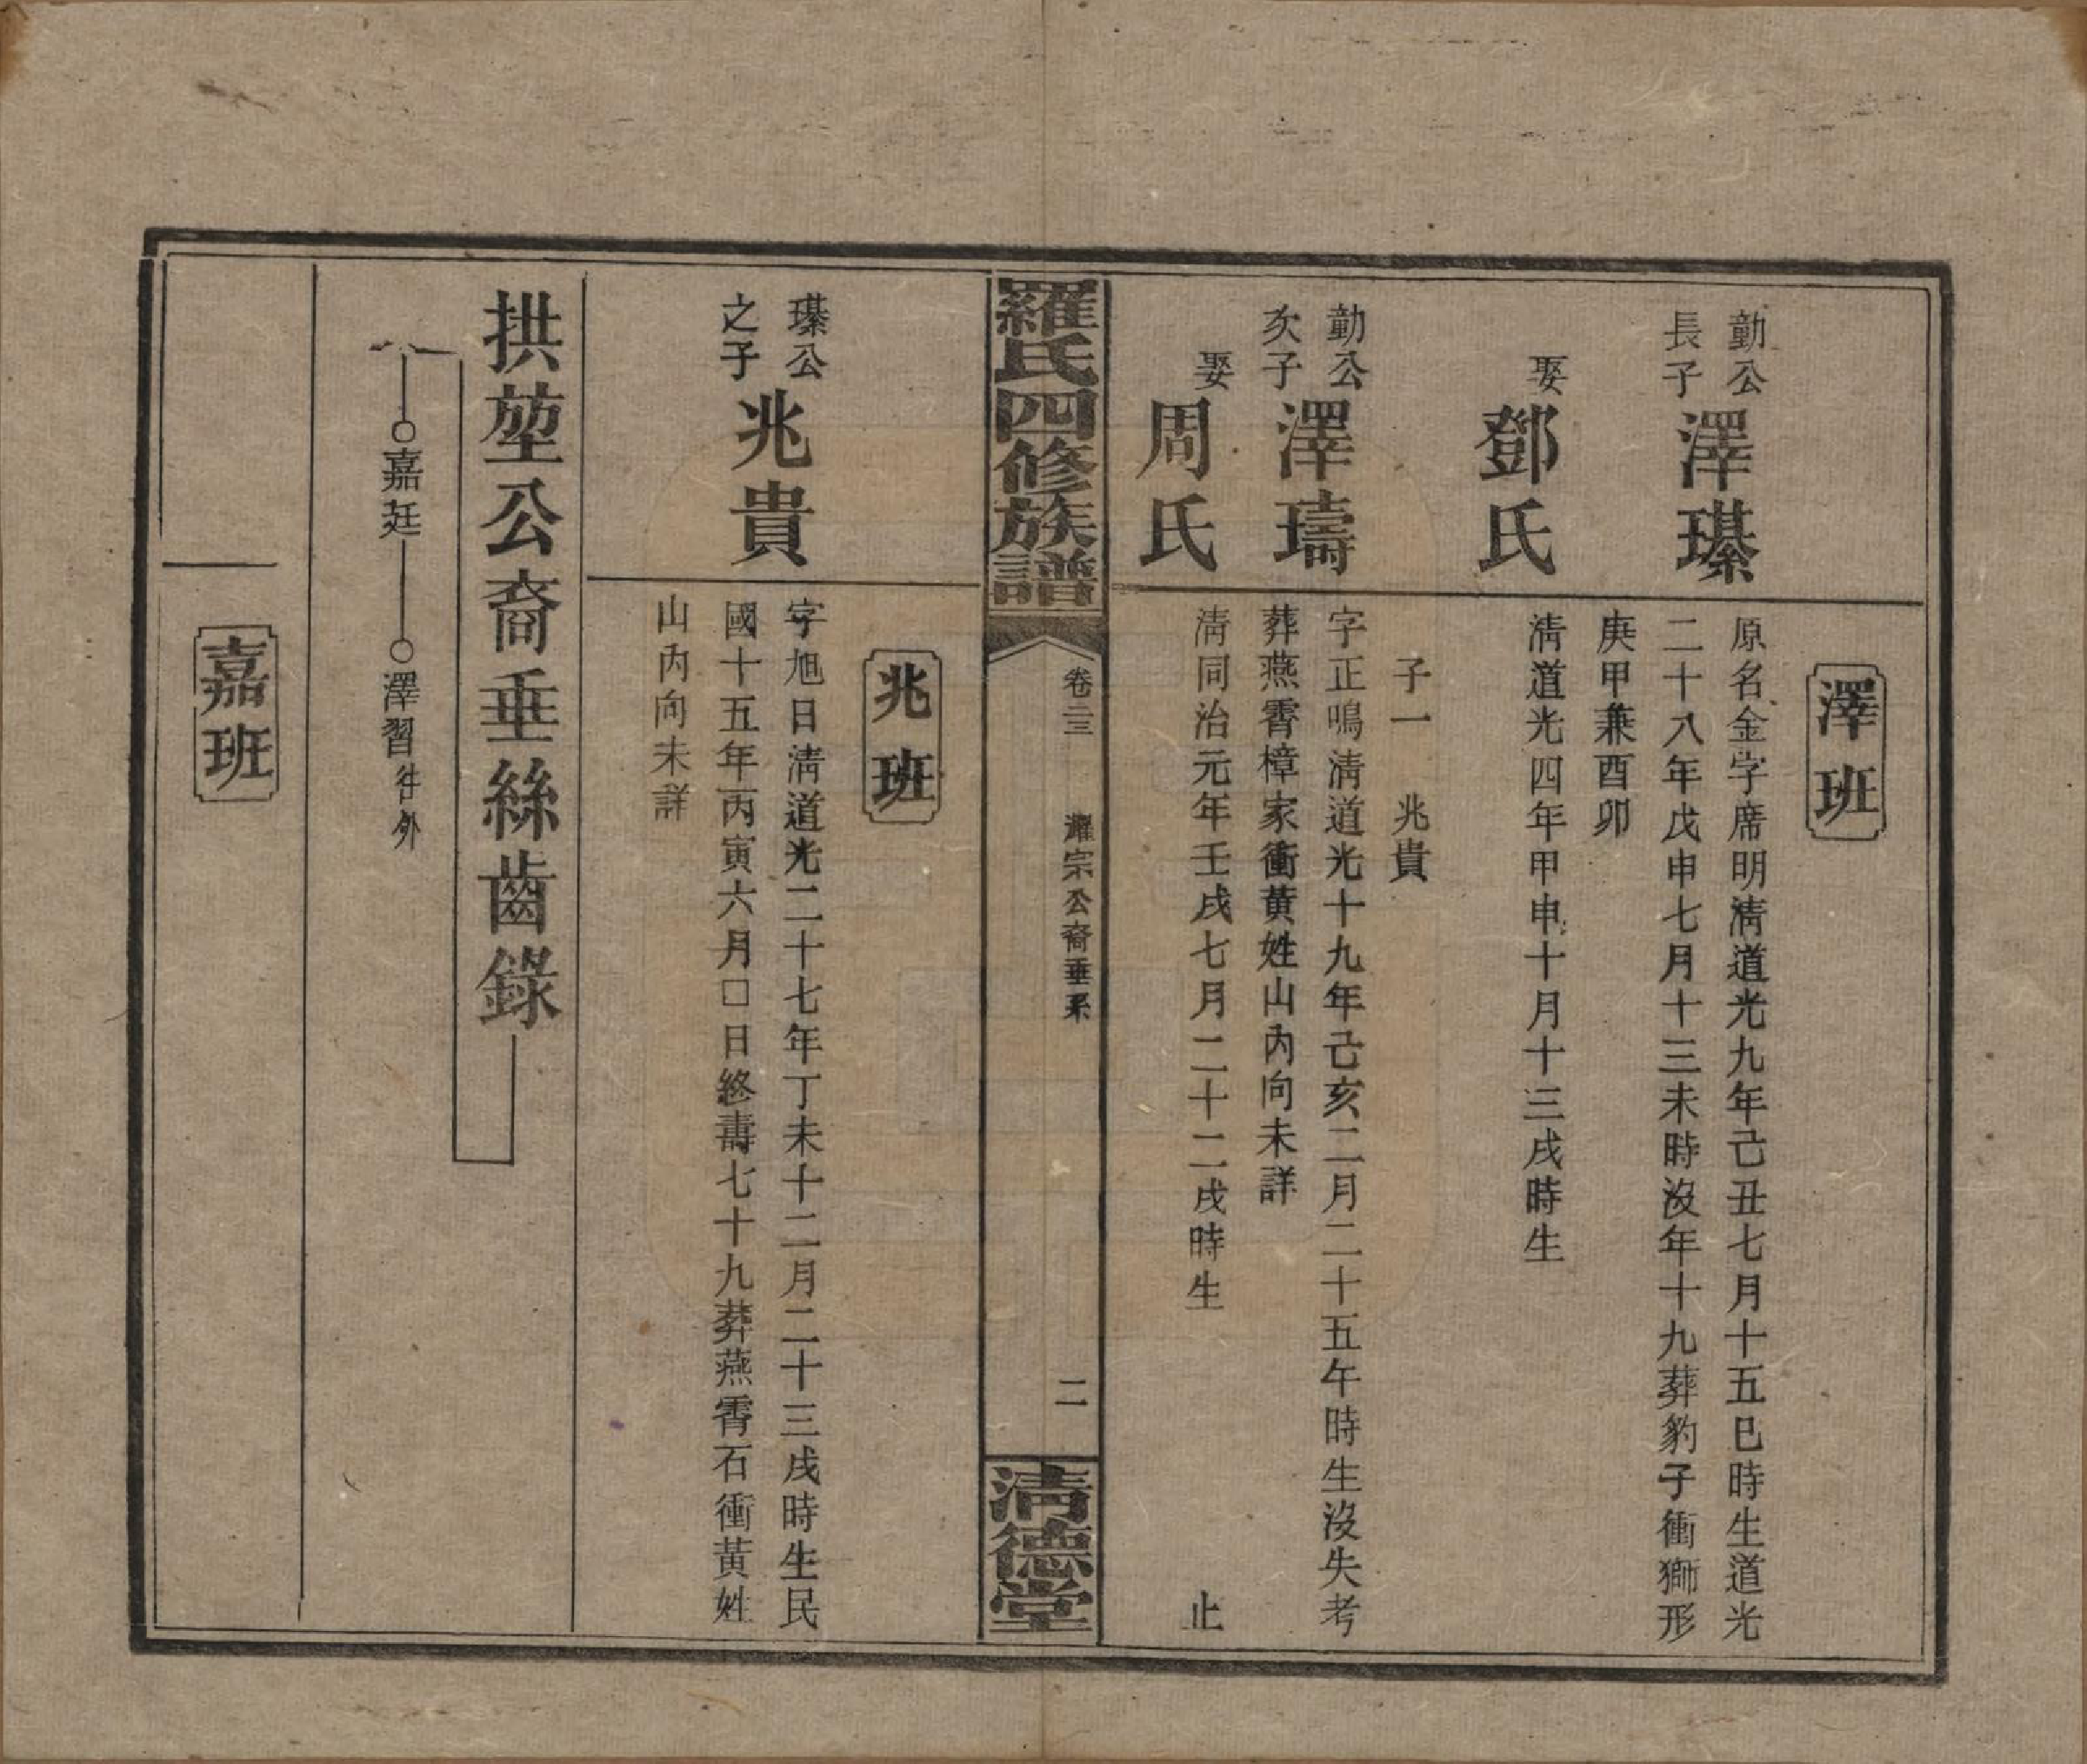 澤班
勤公
長子
澤瑧
原名金字席明清道光九年己丑七月十五巳時生道光
二十八年戊申七月十三未時沒年十九葬豹子衝獅形
庚甲兼酉卯
娶
鄧氏
清道光四年甲申十月十三戌時生
子一　兆貴
勤公
次子
澤璹
字正鳴清道光十九年己亥二月二十五午時生沒失考
葬燕霄樟家衝黃姓山內向未詳
娶
周氏
清同治元年壬戌七月二十二戌時生　止
羅氏四修族譜
卷二三　濯宗公裔垂系　二
清德堂
兆班
瑧公
之子
兆貴
字旭日清道光二十七年丁未十二月二十三戌時生民
國十五年丙寅六月□日終壽七十九葬燕霄石衝黃姓
山內向未詳
拱堃公裔垂絲齒錄
嘉廷
澤習往外
嘉班